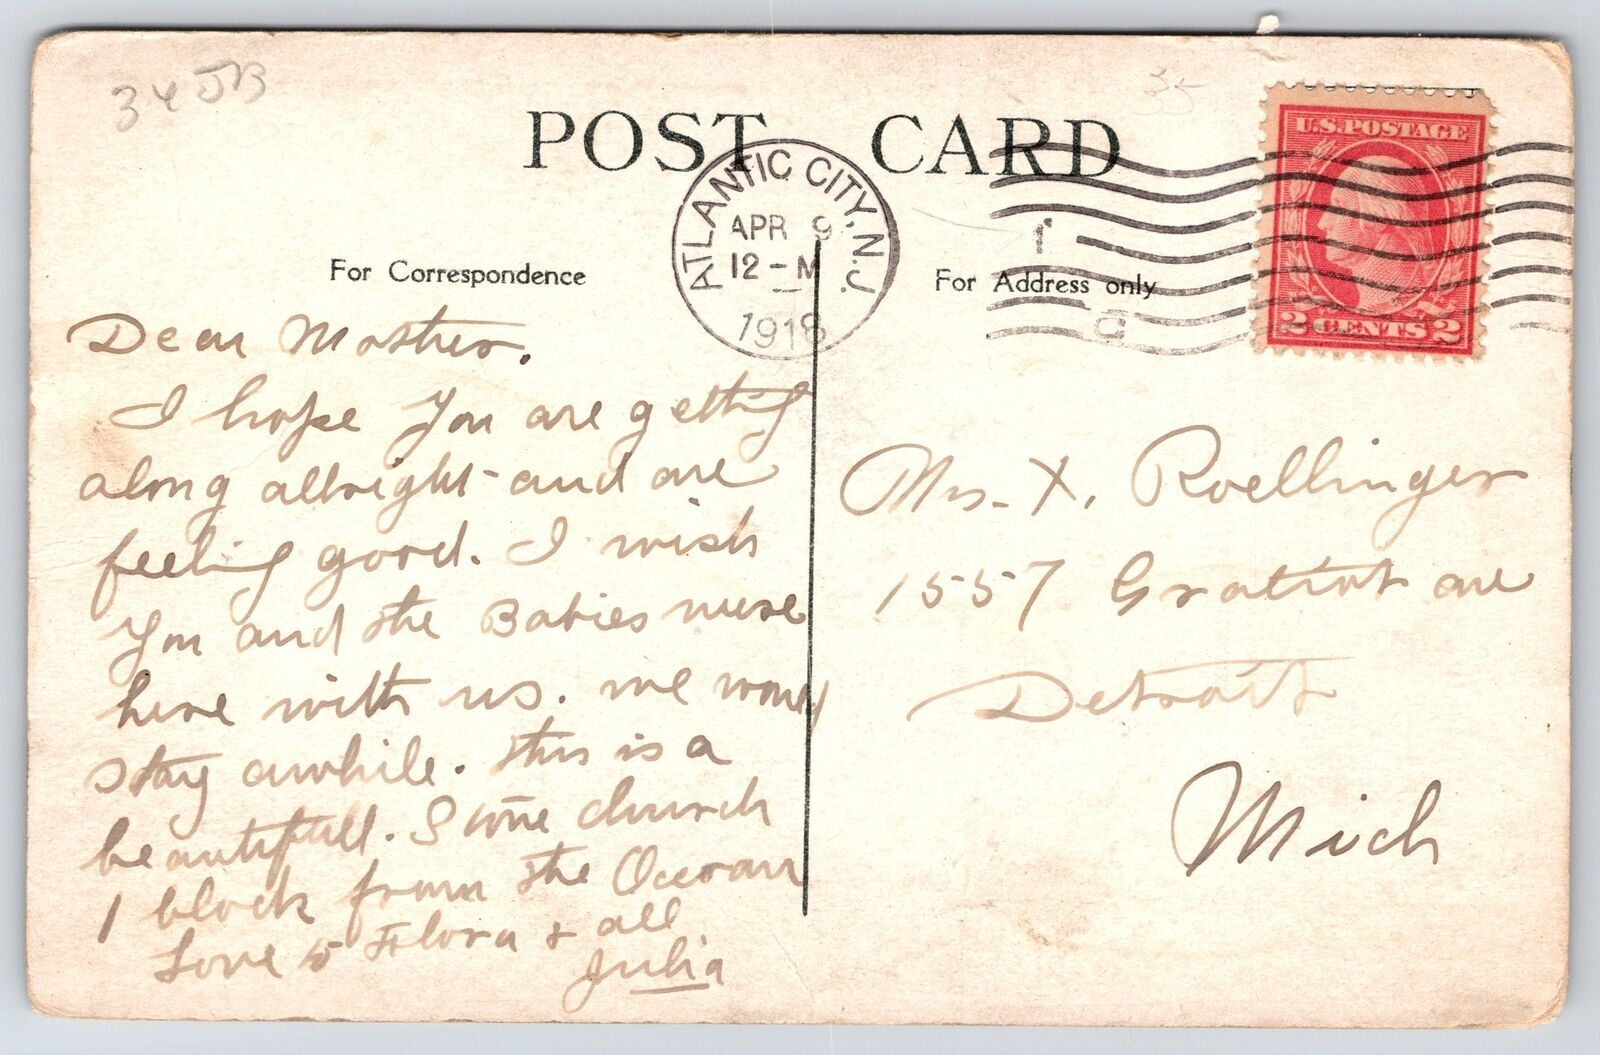 34 JB
35
POST CARD
U.S. POSTAGE
2 CENTS 2
ATLANTIC CITY, N.J.
APR 9
12-M
1918
For Correspondence
For Address only
Dear Mother.
I hope you are getting
along allright and are
feeling good. I wish
you and the Babies were
here with us. we
stay awhile. this is a
beautifull. Stone church
1 block from the Ocean
Love to Flora & all
Julia
Mrs. X. Roellinger
1557 Gratiot ave
Detroit
Mich